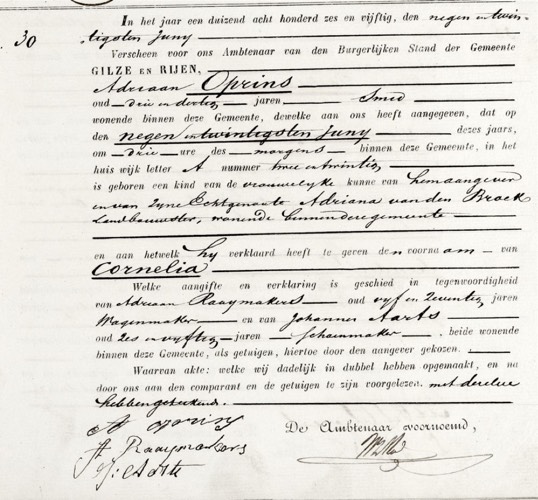 In het jaar een duizend acht honderd zes en vijftig, den negen en twin-
30
tigsten Juny
Verscheen voor ons Ambtenaar van den Burgerlijken Stand der Gemeente
GILZE EN RIJEN,
Adriaan Oprins
oud drie en dertig jaren Smid
wonende binnen deze Gemeente, dewelke aan ons heeft aangegeven, dat op
den negen en twintigsten Juny dezes jaars,
om drie ure des morgens binnen deze Gemeente, in het
huis wijk letter A nummer twee en twintig
is geboren een kind van de vrouwelyke kunne van hem aangever
en van zyne Echtgenoote Adriana van den Broek
Landbouwster, wonende binnen deze gemeente
en aan hetwelk hy verklaard heeft te geven den voornaam van
Cornelia
Welke aangifte en verklaring is geschied in tegenwoordigheid
van Adriaan Raaymakers oud vyf en zeventig jaren
Wagenmaker en van Johannes Aarts
oud zes en vyftig jaren Schoenmaker beide wonende
binnen deze Gemeente, als getuigen, hiertoe door den aangever gekozen.
Waarvan akte: welke wij dadelijk in dubbel hebben opgemaakt, en na
door ons aan den comparant en de getuigen te zijn voorgelezen. met dezelve
hebben geteekend.
A oprins
De Ambtenaar voornoemd,
A Raaymakers